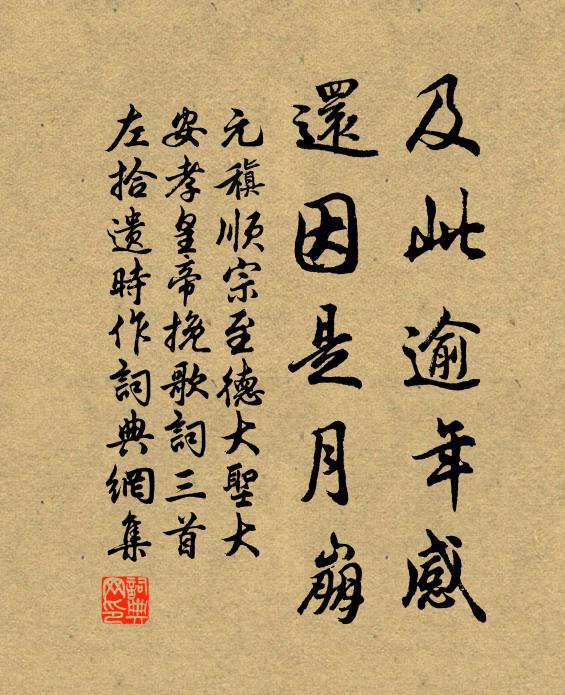 及此逾年感
還因是月崩
元稹順宗至德大聖大
安孝皇帝挽歌詞三首
左拾遺時作詞典網集
詞典网印